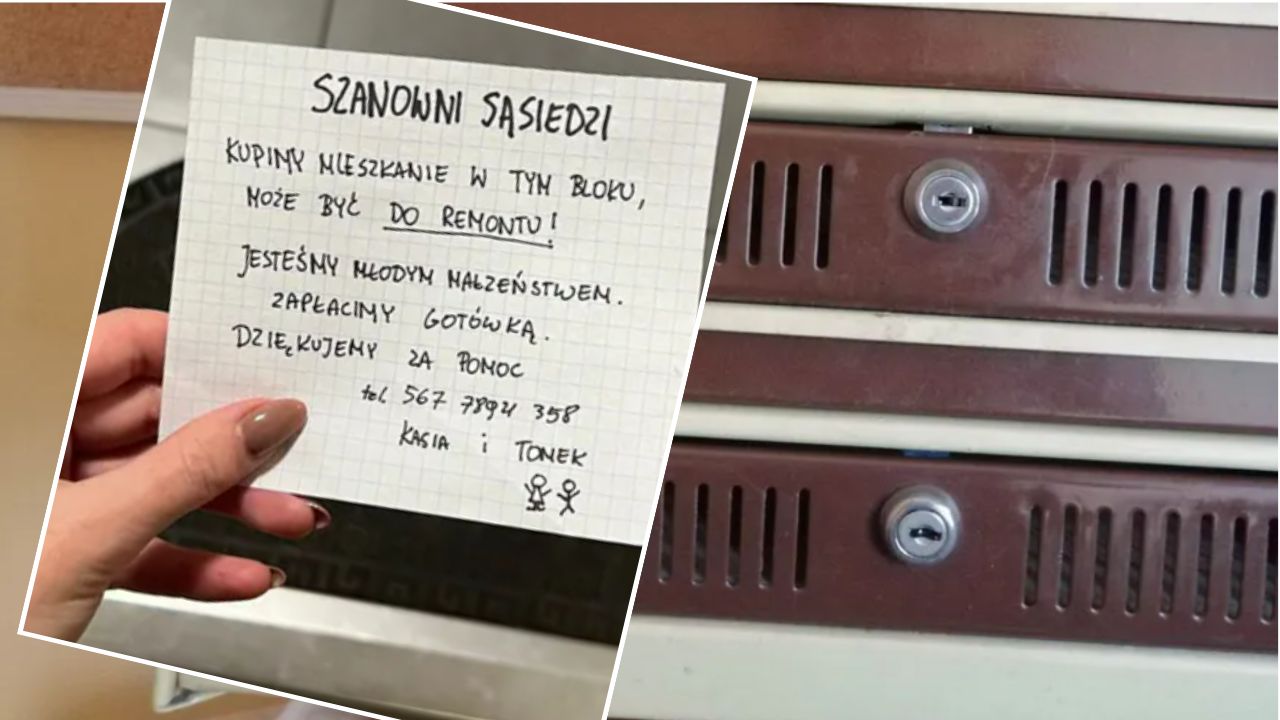 SZANOWNI SĄSIEDZI
KUPIMY MIESZKANIE W TYM BLOKU,
MOŻE BYĆ DO REMONTU!
JESTEŚMY MŁODYM MAŁŻEŃSTWEM.
ZAPŁACIMY GOTÓWKĄ.
DZIĘKUJEMY ZA POMOC
tel 567 7894 358
KASIA i TONEK